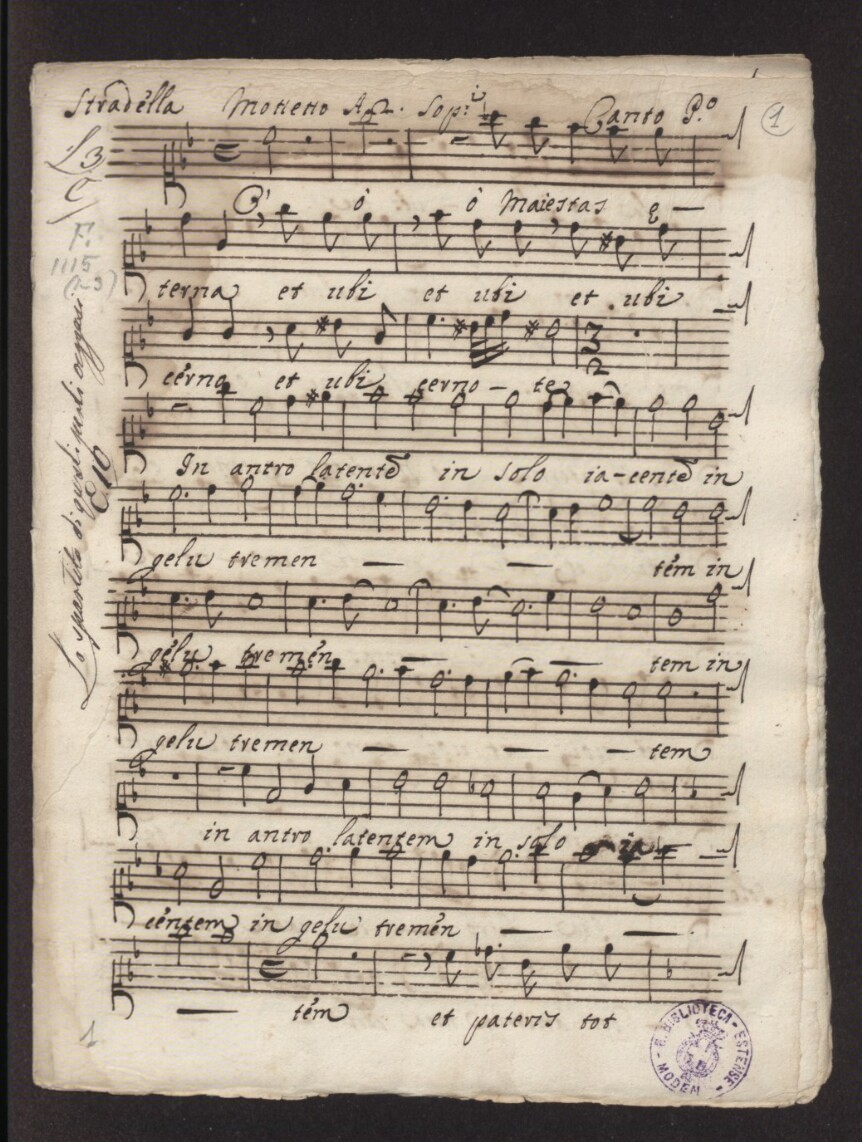 1
Stradella Mottetto A 2. Sop.i Canto P.o
1
L3
C
F.
1115
(1-3)
O ò ò Maiestas e —
terna et ubi et ubi et ubi
cerno et ubi cerno - te
In antro latentẽ in solo ia-centẽ in
gelu tremen — — tẽm in
gelu tremen — — tem in
gelu tremen — — — tem
in antro latentem in solo ia
centem in gelu tremen — —
— tem et pateris tot
Lo spartito di questi
E 16
1
R. BIBLIOTECA - ESTENSE - MODENA